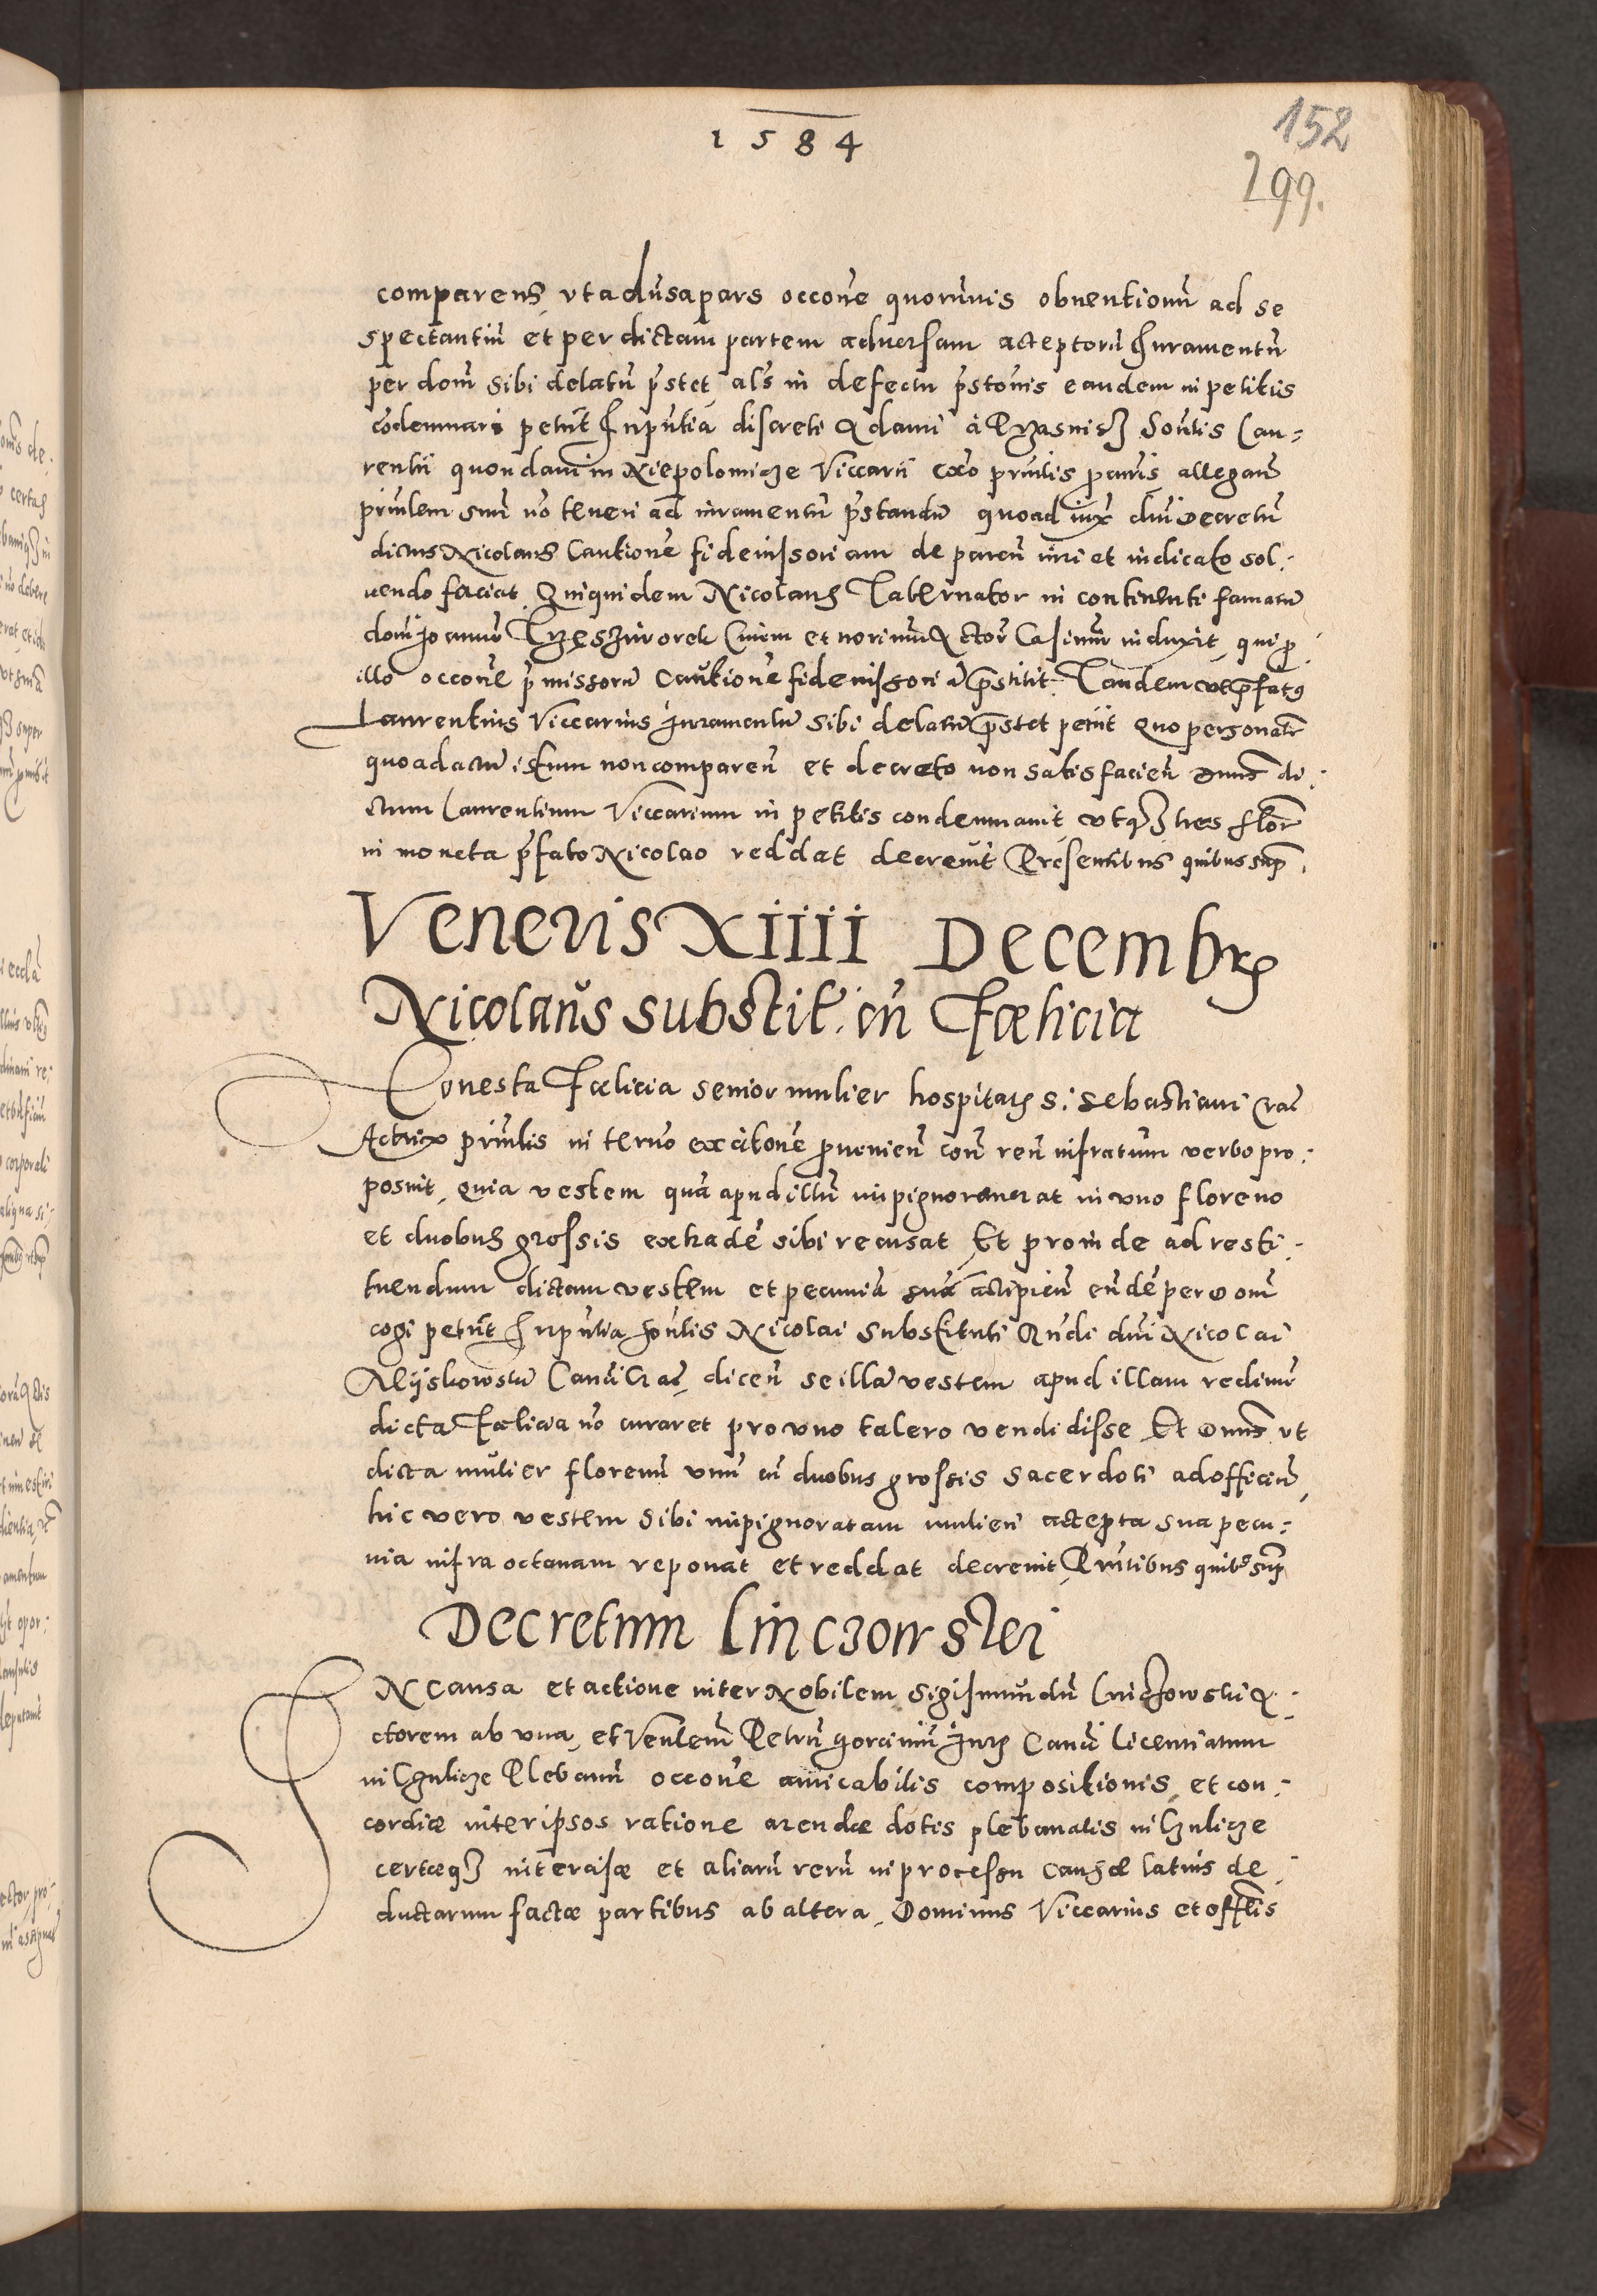 1584
152
299.
comparens, ut adversa pars occone quorumvis obventionum ad se
spectantium et per dictam partem adversam acceptorum Iuramentum
per dom sibi delatum pstet, als in defectu pstonis eandem in petitis
condemnari petiit In pntia discreti Adami à Przasnisz Sontis Lau-
rentii quondam in Niepolomicze Viccarii coxo prinlis paris allegan
prinlem suum no teneri ad iuramentum pstandum quoad iux dni Decretum
dictus Nicolaus Cautione fideiussoriam de paren iuri et iudicato sol-
vendo faciat. Qui quidem Nicolaus Tabernator in continenti famatum
dom Joannem civem et Casimir induxit, qui p
illo occone pmissorum Cautione fideiussoriam pstitit. Tandem ut pfatus
Laurentius Viccarius Iuramentum sibi delatum pstet petiit Quo personatr
quo ad actum istum non comparen et decreto non satisfacien Dnns di-
ctum Laurentium Viccarium in petitis condemnavit utqz tres flor
in moneta pfato Nicolao reddat decrevit Presentibus quibus sup.
Veneris XIIII Decembris
Nicolaus substit. cum Foelicia
Honesta Foelicia senior mulier hospitalis S. Sebastiani Crac
Actrix prinlis in termo ex citone provenien con ren infratum verbo pro-
posuit, quia vestem quam apud illum impignoraverat in uno floreno
et duobus grossis extrade sibi recusat Et proinde ad resti-
tuendum dictam vestem et pecuniam suam accipien eunde per Dom
cogi petiit In pntia Sontis Nicolai Substituti Rndi dni Nicolai
Myskowski Canci Crac, dicen se illam vestem apud illam redimere
dicta Foelicia no curaret pro uno talero vendidisse Et Dnns ut
dicta mulier florenum unum cum duobus grossis sacerdoti ad officium,
hic vero vestem sibi impignoratam mulieri accepta sua pecu-
nia infra octavam reponat et reddat decrevit Pntibus quibus sup
Decretum Linczowskei
IN causa et actione inter Nobilem Sigismundum Linczowski A-
ctorem ab una, et Venlem Petrum Gorcinium Iuris Canci licentiatum
in Czulicze Plebanum occone amicabilis compositionis et con-
cordiæ inter ipsos ratione arendæ dotis plebanalis in Czulicze
certæqz intercisæ et aliarum rerum in processu causæ latius de-
ductarum factæ partibus ab altera, Dominus Viccarius et offlis